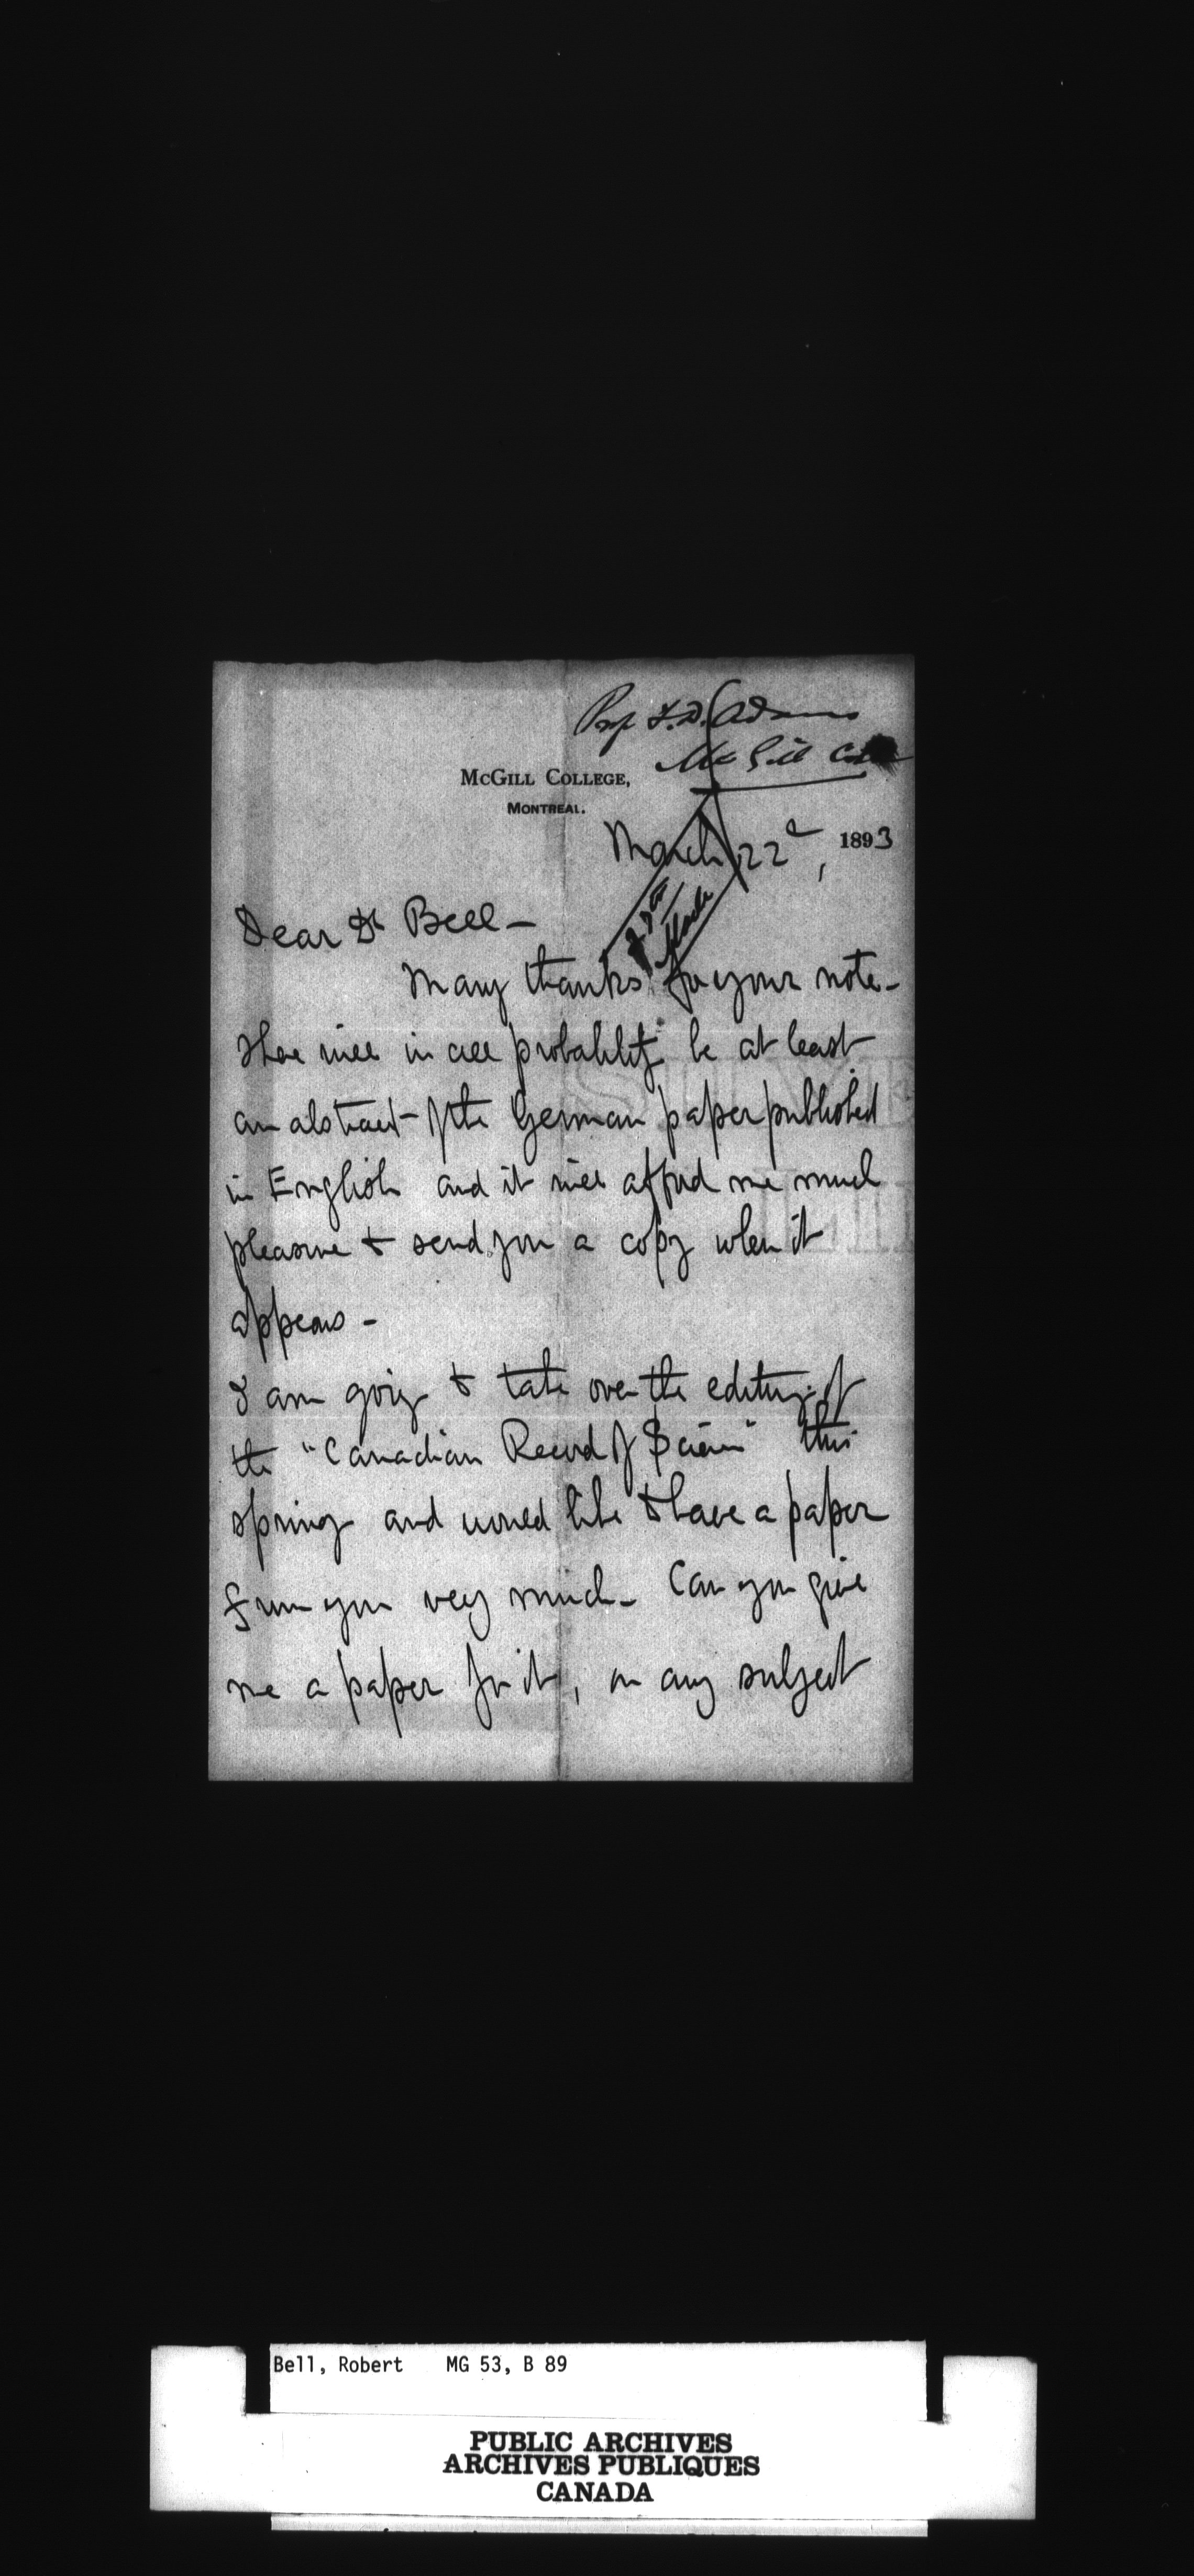 Prof F.D. Adams
McGill Col
McGILL COLLEGE,
MONTREAL.
March 22d, 1893
Dear Dr Bell –
Many thanks for your note –
There will in all probability be at least
an abstract of the German paper published
in English and it will afford me much
pleasure to send you a copy when it
appears –
I am going to take over the editing of
the "Canadian Record of Science" this
spring and would like to have a paper
from you very much – Can you give
me a paper for it, on any subject
Bell, Robert MG 53, B 89
PUBLIC ARCHIVES
ARCHIVES PUBLIQUES
CANADA